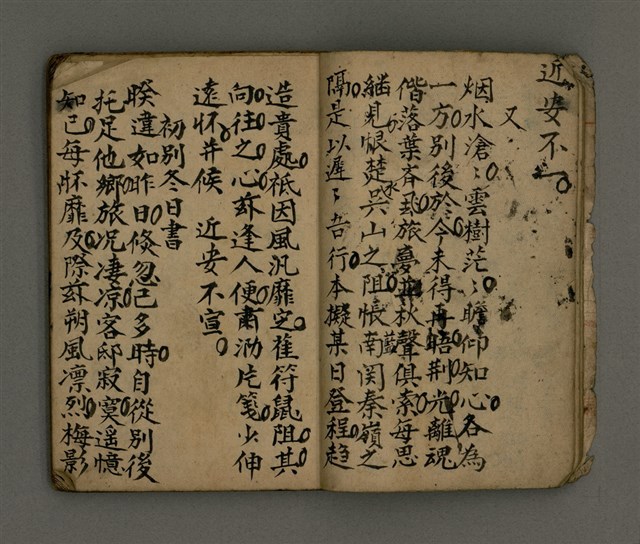 近安不一
又
烟水滄〻雲樹茫〻瞻仰知心各為
一方別後於今未得再晤荆光離魂
偕落葉齊飛旅夢與秋聲俱索每思
緬見恨楚水吳山之阻悵南関秦嶺之
隔是以遲〻吾行本擬某日登程趋
造貴處祇因風汎靡定萑符鼠阻其
向往之心玆逢人便肅泐片箋少伸
遠怀并候 近安不宣
初別冬日書
睽違如昨日倏忽已多時自從別後
托足他鄉旅況凄凉客邸寂寞遥憶
知已每怀靡及際玆朔風凛烈梅影